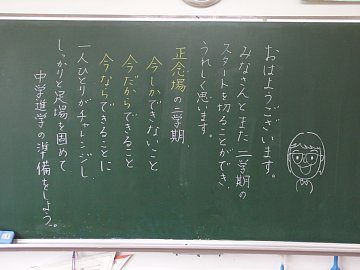 おはようございます。
みなさんとまた二学期の
スタートを切ることができ、
うれしく思います。
正念場の二学期
今しかできないこと
今だからできること
今ならできることに
一人ひとりがチャレンジし
しっかりと足場を固めて
中学進学の準備をしよう。